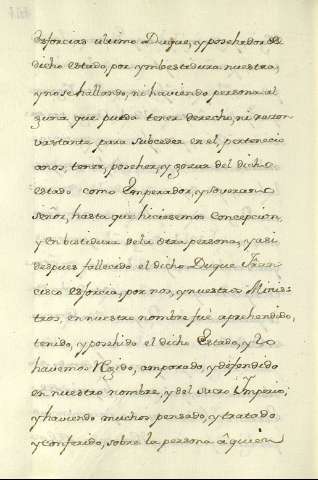 esforcias ultimo Duque, y poshedor de
dicho estado, por ymbestedura nuestra,
y nose hallando, ni haviendo persona al
guna que pueda tener derecho, ni razon
vastante para subceder en el, pertenecia
anos, tener, poseher, y gozar del dicho
estado como Emperador, y soverano
señor, hasta que hiciesemos concepcion,
y enbestidura del a otra persona, y asi
despues fallecido el dicho Duque Fran
cisco esforcia, por nos, y nuestros Minis
tros, en nuestro nombre fué aprehendido,
tenido, y poshido el dicho Estado, y lo
havemos Regido, amparado, y defendido
en nuestro nombre, y del sacro Imperio;
y haviendo muchos pensado, y tratado
y conferido, sobre la persona à quien